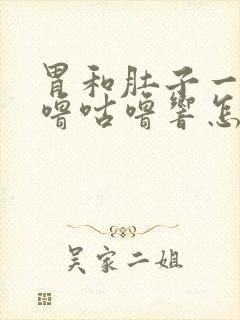 胃和肚子一
噜咕噜响怎
吴家二姐